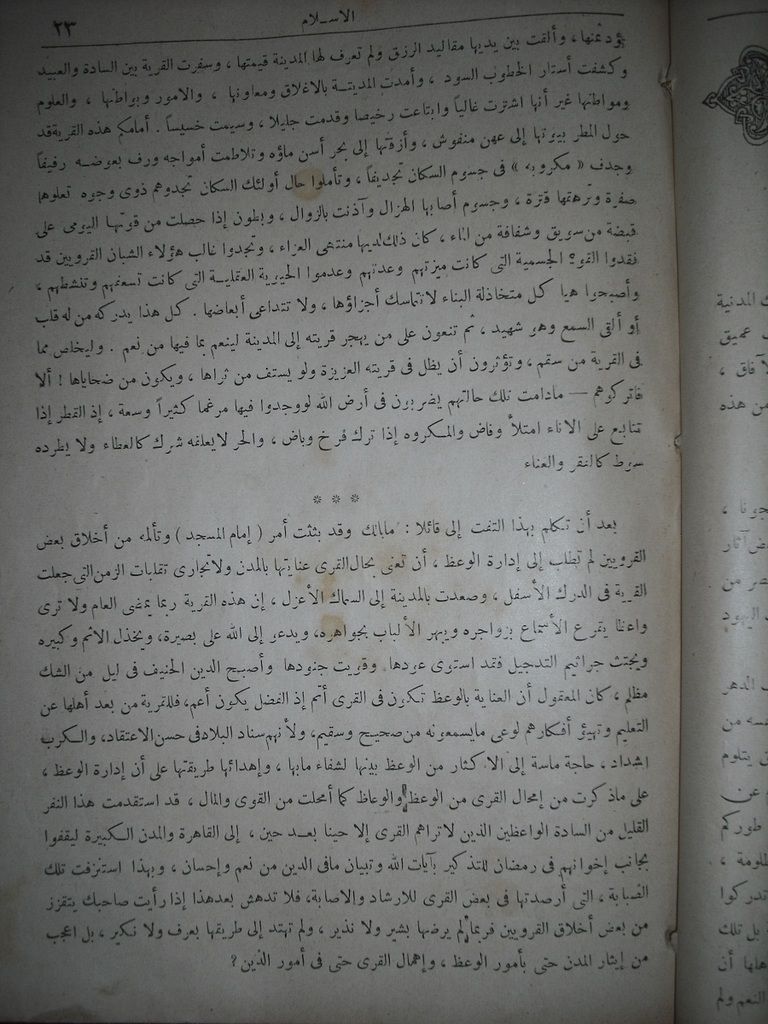 الاسلام
٢٣
يؤدعنها ، وألقت بين يديها مقاليد الرزق ولم تعرف لها المدينة قيمتها ، وسفرت القرية بين السادة والعبيد
وكشفت أستار الخطوب السود ، وأمدت المدينة بالاخلاق ومعاونها ، والامور وبواطنها ، والعلوم
ومواطنها غير أنها اشترت غالياً وابتاعت رخيصا وقدمت جليلا ، وسيمت خسيساً . أمامكم هذه القرية قد
حول المطر بيوتها إلى عهن منفوش ، وأزقتها إلى بحر أسن ماؤه وتلاطمت أمواجه ورف بعوضه رفيفاً
وجدف « مكروبه » فى جسوم السكان تجديفاً ، وتأملوا حال أولئك السكان تجدوهم ذوى وجوه تعلوها
صفرة وترهقها قترة ، وجسوم أصابها الهزال وآذنت بالزوال ، وبطون إذا حصلت من قوتها اليومى على
قبضة من سويق وشفافة من ماء ، كان ذلك لديها منتهى العزاء ، وتجدوا غالب هؤلاء الشبان القرويين قد
فقدوا القوة الجسمية التى كانت ميزتهم وعدتهم وعدموا الحيوية العقلية التى كانت تسعفهم وتنشطهم ،
وأصبحوا هياكل متخاذلة البناء لا تتماسك أجزاؤها ، ولا تتداعى أبعاضها . كل هذا يدركه من له قلب
أو ألقى السمع وهو شهيد ، ثم تنعون على من يهجر قريته إلى المدينة لينعم بما فيها من نعم . وليخلص مما
فى القرية من سقم ، وتؤثرون أن يظل فى قريته العزيزة ولو يستف من ثراها ، ويكون من ضحاياها ! ألا
فاتركوهم — مادامت تلك حالتهم يضربون فى أرض الله لووجدوا فيها مرغما كثيراً وسعة ، إذ القطر إذا
تتابع على الاناء امتلأ وفاض والمكروه إذا ترك فرخ وباض ، والحر لايعلقه شرك كالعطاء ولا يطرده
سوط كالفقر والعناء
* * *
بعد أن تكلم بهذا التفت إلى قائلا : مابالك وقد بثثت أمر ( إمام المسجد ) وتألمه من أخلاق بعض
القرويين لم تطلب إلى إدارة الوعظ ، أن تعنى بحال القرى عنايتها بالمدن ولاتجارى تقلبات الزمن التى جعلت
القرية فى الدرك الأسفل ، وصعدت بالمدينة إلى السماك الأعزل ، إن هذه القرية ربما يمضى العام ولا ترى
واعظا يقرع الأسماع بزواجره ويبهر الألباب بجواهره ، ويدعو إلى الله على بصيرة ، ويخذل الاثم وكبيره
ويجتث جراثيم التدجيل فقد استوى عودها وقويت جنودها وأصبح الدين الحنيف فى ليل من الشك
مظلم ، كان المعقول أن العناية بالوعظ تكون فى القرى أتم إذ الفضل يكون أعم ، فللقرية من بعد أهلها عن
التعليم وتهيؤ أفكارهم لوعى مايسمعونه من صحيح وسقيم ، ولأنهم سناد البلاد فى حسن الاعتقاد ، والكرب
الشداد ، حاجة ماسة إلى الاكثار من الوعظ بينها لشفاء مابها ، وإهدائها طريقتها على أن إدارة الوعظ ،
على ماذكرت من إمحال القرى من الوعظ والوعاظ كما أمحلت من القوى والمال ، قد استقدمت هذا النفر
القليل من السادة الواعظين الذين لاتراهم القرى إلا حينا بعد حين ، إلى القاهرة والمدن الكبيرة ليقفوا
بجانب إخوانهم فى رمضان للتذكير بآيات الله وتبيان مافى الدين من نعم وإحسان ، وبهذا استنزفت تلك
الصبابة ، التى أرصدتها فى بعض القرى للارشاد والاصابة ، فلا تدهش بعد هذا إذا رأيت صاحبك يتقزز
من بعض أخلاق القرويين فربما لم يرضها بشير ولا نذير ، ولم تهتد إلى طريقها بعرف ولا نكير ، بل اعجب
من إيثار المدن حتى بأمور الوعظ ، وإهمال القرى حتى فى أمور الدين ؟